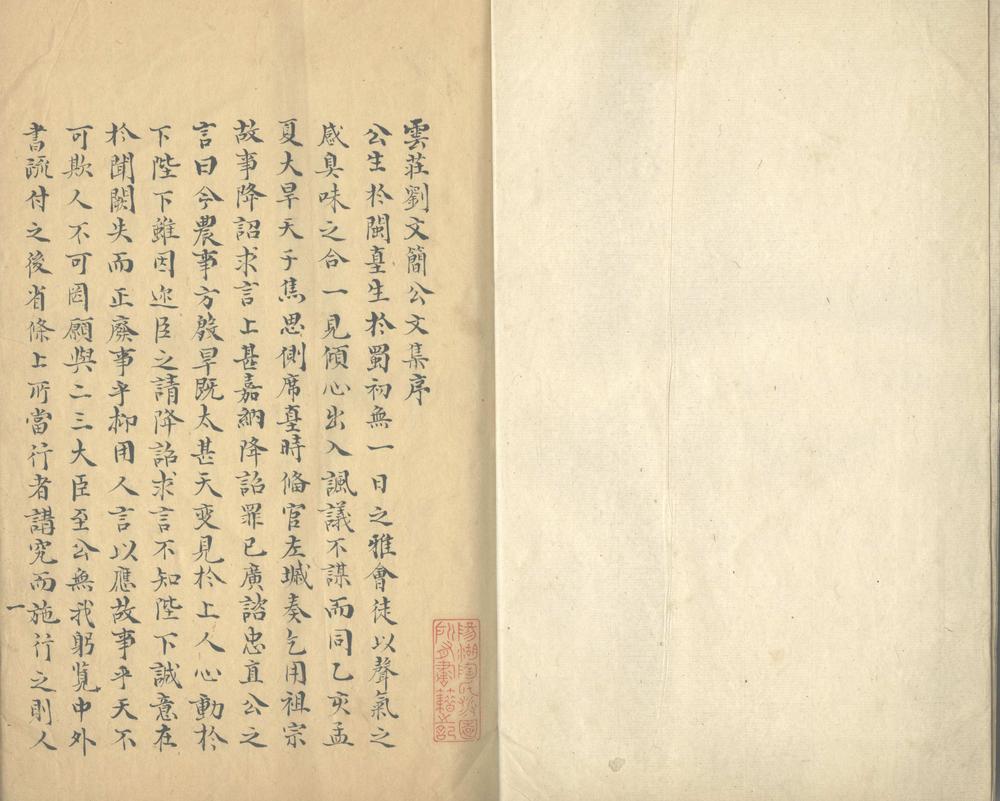 雲莊劉文簡公文集序
公生於閩臺生於蜀初無一日之雅會徒以聲氣之
感臭味之合一見傾心出入諷議不謀而同乙亥孟
夏大旱天子焦思側席臺時偹官左堿奏乞用祖宗
故事降詔求言上甚嘉納降詔罪已廣諮忠直公之
言曰今農事方殷旱既太甚天変見於上人心動於
下陛下雖因迩臣之請降詔求言不知陛下誠意在
於聞闕失而正廢事乎抑用人言以應故事乎天不
可欺人不可罔願與二三大臣至公無我躬覧中外
書疏付之後省條上所當行者講究而施行之則人
一